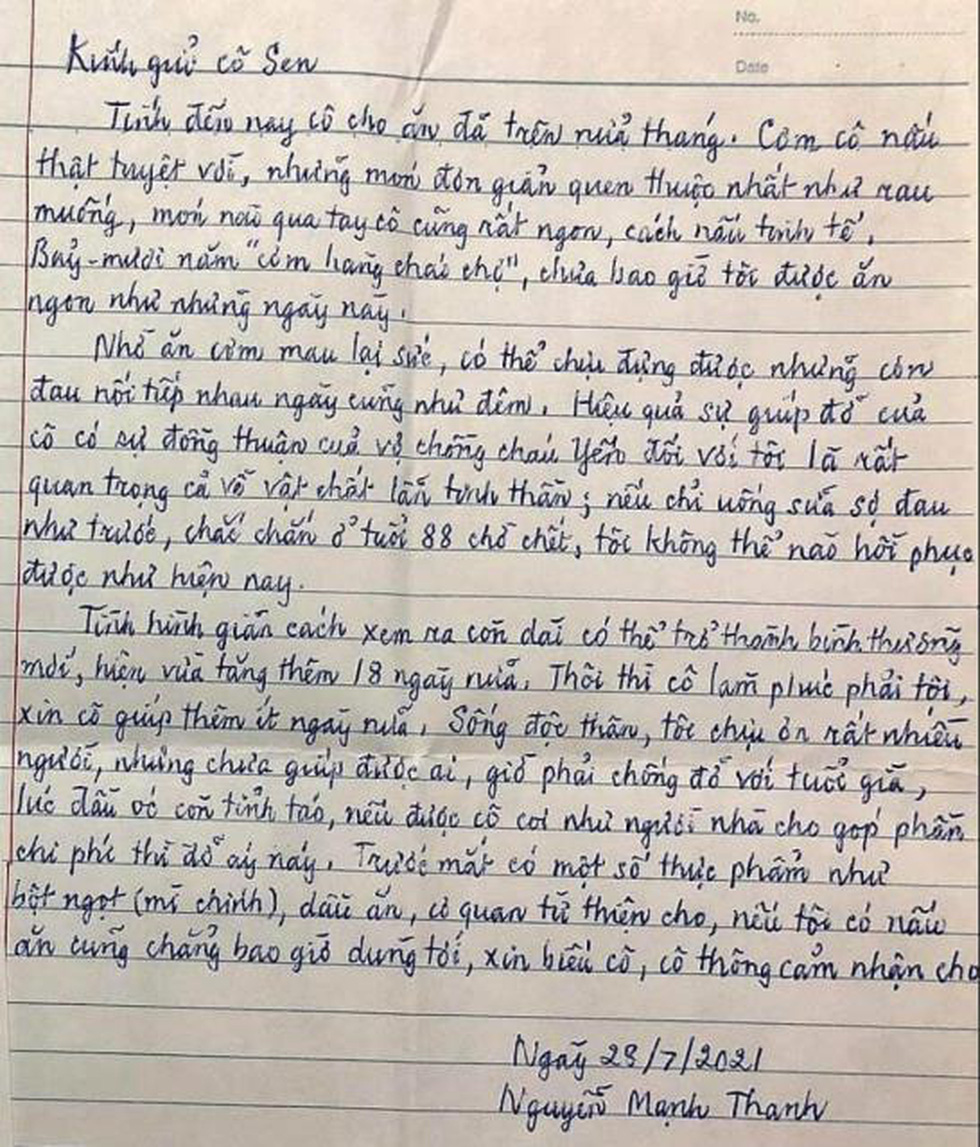 No.
Date
Kính gửi cô Sen
Tính đến nay cô cho ăn đã trên nửa tháng. Cơm cô nấu
thật tuyệt vời, những món đơn giản quen thuộc nhất như rau
muống, món nào qua tay cô cũng rất ngon, cách nấu tinh tế.
Bảy-mươi năm "cơm hàng cháo chợ", chưa bao giờ tôi được ăn
ngon như những ngày này.
Nhờ ăn cơm mau lại sức, có thể chịu đựng được những cơn
đau nối tiếp nhau ngày cũng như đêm. Hiệu quả sự giúp đỡ của
cô có sự đồng thuận của vợ chồng cháu Yến đối với tôi là rất
quan trọng cả về vật chất lẫn tinh thần; nếu chỉ uống sữa sợ đau
như trước, chắc chắn ở tuổi 88 chờ chết, tôi không thể nào hồi phục
được như hiện nay.
Tình hình giãn cách xem ra còn dài có thể trở thành bình thường
mới, hiện vừa tăng thêm 18 ngày nữa. Thôi thì cô làm phúc phải tội,
xin cô giúp thêm ít ngày nữa. Sống độc thân, tôi chịu ơn rất nhiều
người, nhưng chưa giúp được ai, giờ phải chống đỡ với tuổi già,
lúc đầu óc còn tỉnh táo, nếu được cô coi như người nhà cho góp phần
chi phí thì đỡ áy náy. Trước mắt có một số thực phẩm như
bột ngọt (mì chính), dầu ăn, cơ quan từ thiện cho, nếu tôi có nấu
ăn cũng chẳng bao giờ dùng tới, xin biếu cô, cô thông cảm nhận cho
Ngày 29/7/2021
Nguyễn Mạnh Thanh